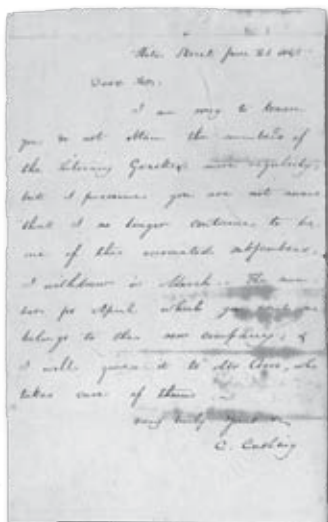 Street June 21
Dear Sir.
I am sorry to trouble
you do not obtain the numbers of
the Literary more regularly,
but I presume you are not aware
that I no longer continue to be
one of the associated subscribers.
I withdrew in March. The num-
ber for April which you
belongs to the new company, &
I will give it to Mr who
takes care of them
very truly yours
C. Cushing